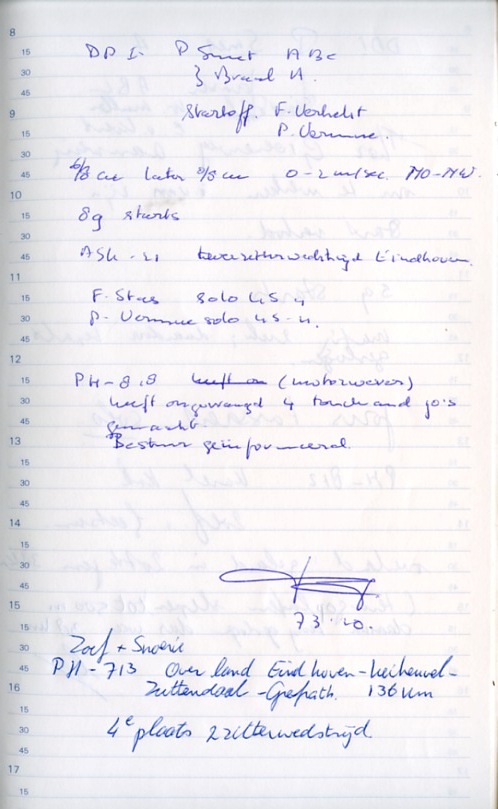 8
15 DDI. P Smet ABC
30 } Brand A.
45
9 Startoff. F. Verhelst
15 P. Vermue.
30
45 6/8 cu later /8 cu 0-2 m/sec. NO-NW.
10
15 8g starts
30
45 ASK-21 tweezitterwedstrijd Eindhoven.
11
15 F. Stas solo LS-4
30 P. Vermue solo LS-4.
45
12
15 PH-818 heeft on (motorwever)
30 heeft ongevraagd 4 touch and go's
45 gemaakt
13 Bestuur geïnformeerd.
15
30
45
14
15
30
45
15 73.10.
15
30 Zoef + Snorrie
45 PH-713 Overland Eindhoven-Keiheuvel-
16 Zuttendaal-Grefrath. 136 km
15
30 4e plaats 2zitterwedstrijd.
45
17
15